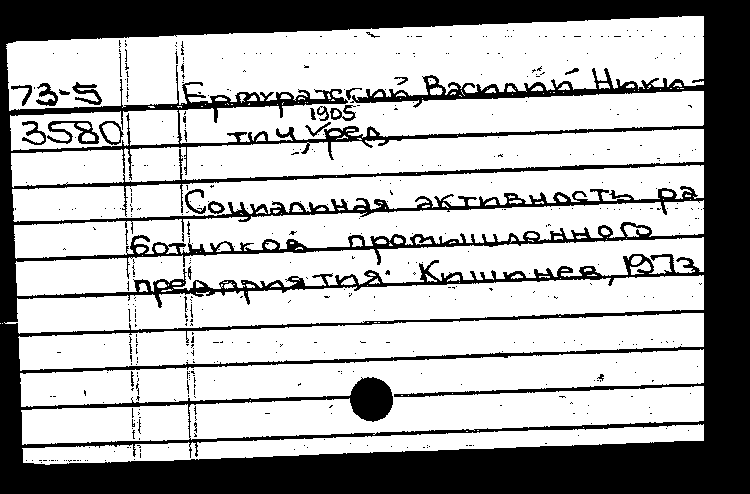 73-5 Ермуратский, Василий Ники-
3580 тич, 1905 ред.
Социальная активность ра
ботников промышленного
предприятия. Кишинев, 1973